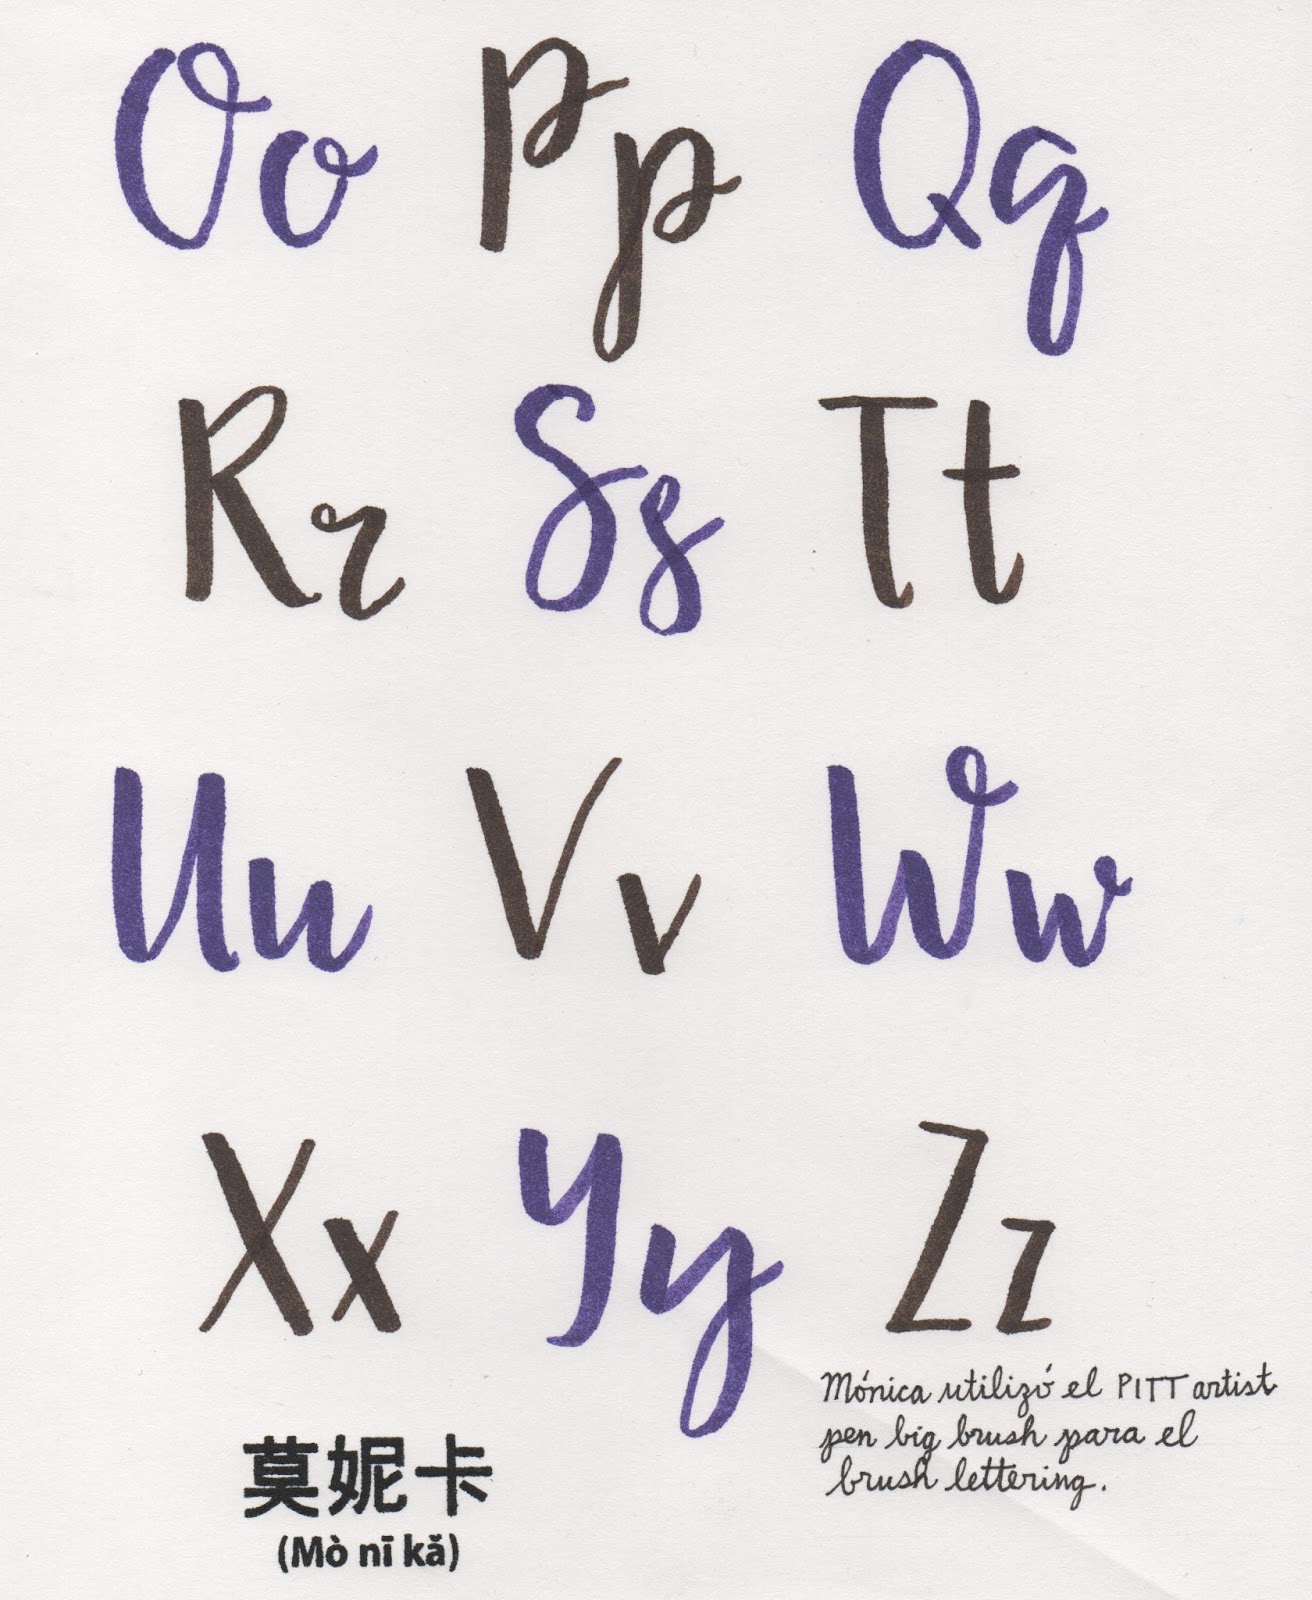 Oo Pp Qq
Rr Ss Tt
Uu Vv Ww
Xx Yy Zz
Mónica utilizó el PITT artist
pen big brush para el
brush lettering.
莫妮卡
(Mò nī kǎ)